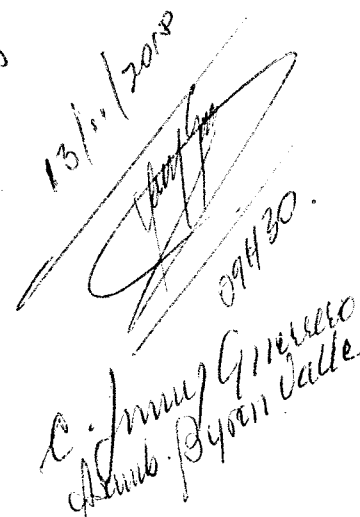 13/11/2018
09H30.
C. Jenny Guerrero
Asamb. Byron Valle.